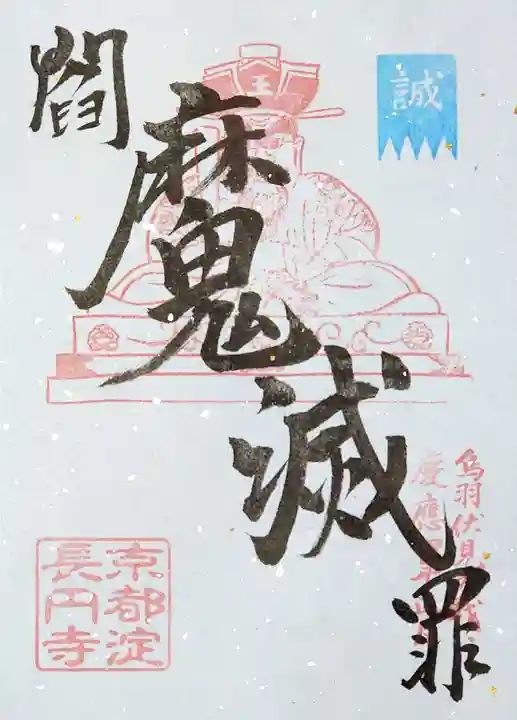 誠
王
閻
魔
滅
罪
鳥羽伏見
慶應
京都淀
長円寺